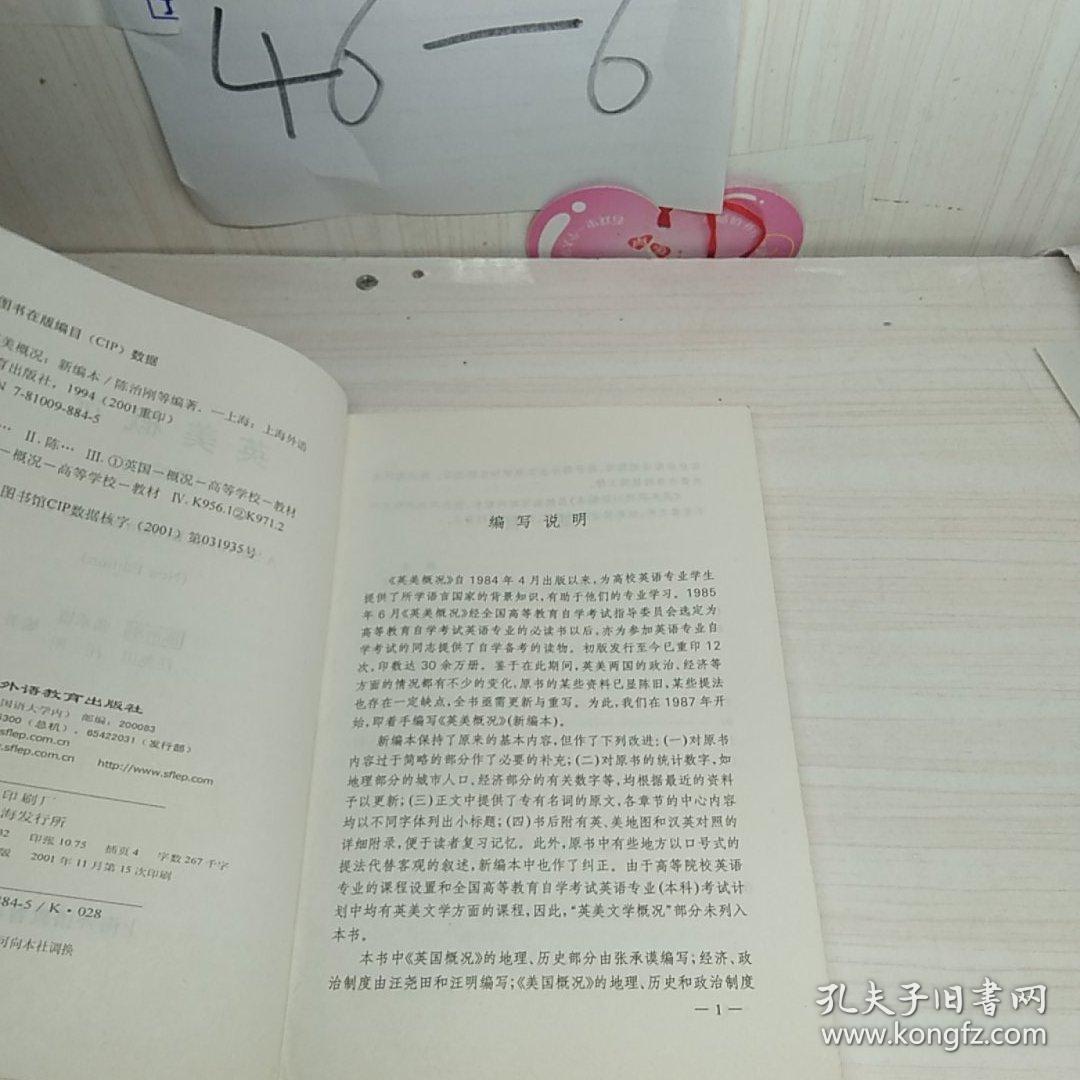 46—6
图书在版编目（CIP）数据
美概况：新编本／陈治刚等编著．—上海：上海外语
育出版社，1994（2001重印）
N 7-81009-884-5
… Ⅱ．陈… Ⅲ．①英国－概况－高等学校－教材
－概况－高等学校－教材 Ⅳ．K956.1②K971.2
图书馆CIP数据核字（2001）第031935号
外语教育出版社
国语大学内） 邮编：200083
6300（总机），65422031（发行部）
sflep.com.cn
.com.cn http://www.sflep.com
印刷厂
海发行所
32 印张 10.75 插页 4 字数 267 千字
版 2001 年 11 月第 15 次印刷
884-5 / K · 028
可向本社调换
编写说明
《英美概况》自 1984 年 4 月出版以来，为高校英语专业学生
提供了所学语言国家的背景知识，有助于他们的专业学习。1985
年 6 月《英美概况》经全国高等教育自学考试指导委员会选定为
高等教育自学考试英语专业的必读书以后，亦为参加英语专业自
学考试的同志提供了自学备考的读物。初版发行至今已重印 12
次，印数达 30 余万册。鉴于在此期间，英美两国的政治、经济等
方面的情况都有不少的变化，原书的某些资料已显陈旧，某些提法
也存在一定缺点，全书亟需更新与重写。为此，我们在 1987 年开
始，即着手编写《英美概况》（新编本）。
新编本保持了原来的基本内容，但作了下列改进：（一）对原书
内容过于简略的部分作了必要的补充；（二）对原书的统计数字，如
地理部分的城市人口，经济部分的有关数字等，均根据最近的资料
予以更新；（三）正文中提供了专有名词的原文，各章节的中心内容
均以不同字体列出小标题；（四）书后附有英、美地图和汉英对照的
详细附录，便于读者复习记忆。此外，原书中有些地方以口号式的
提法代替客观的叙述，新编本中也作了纠正。由于高等院校英语
专业的课程设置和全国高等教育自学考试英语专业（本科）考试计
划中均有英美文学方面的课程，因此，“英美文学概况”部分未列入
本书。
本书中《英国概况》的地理、历史部分由张承谟编写；经济、政
治制度由汪尧田和汪明编写；《美国概况》的地理、历史和政治制度
— 1 —
孔夫子旧书网
www.kongfz.com